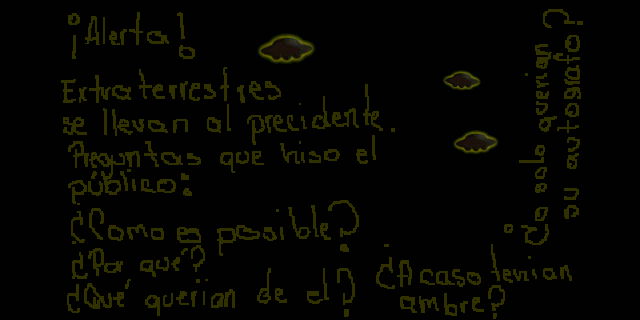 ¡Alerta!
Extraterrestres
se llevan al precidente.
Preguntas que hiso el
público:
¿Como es posible?
¿Por qué?
¿Qué querian de el?
¿Acaso tenian
ambre?
¿o solo querian
su autografo?